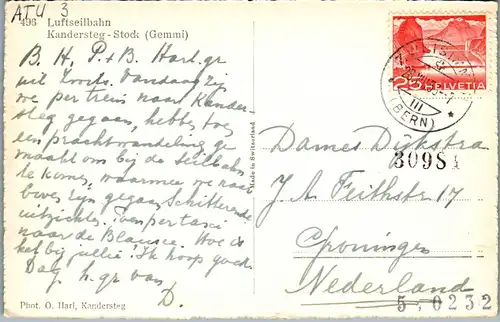 ATU 3
496 Luftseilbahn
Kandersteg-Stock (Gemmi)
B. H. P. + B. Hart. gr
uit Zwits. Vandaag zijn
we per trein naar Kander-
steg gegaan, hebben toen
een prachtwandeling ge
maakt om bij de Seilbahn
te komen, waarmee we naar
boven zijn gegaan. Schitterende
uitzichten. Toen per taxi
naar de Blausee. Hoe is
het bij jullie? Ik hoop goed.
Dag, h. gr van
D.
Phot. O. Hari, Kandersteg
Made in Switzerland
25 HELVETIA
(BERN)
III
Dames Dijkstra
30984
J A Feithstr 17
Groningen
Nederland
5,0232